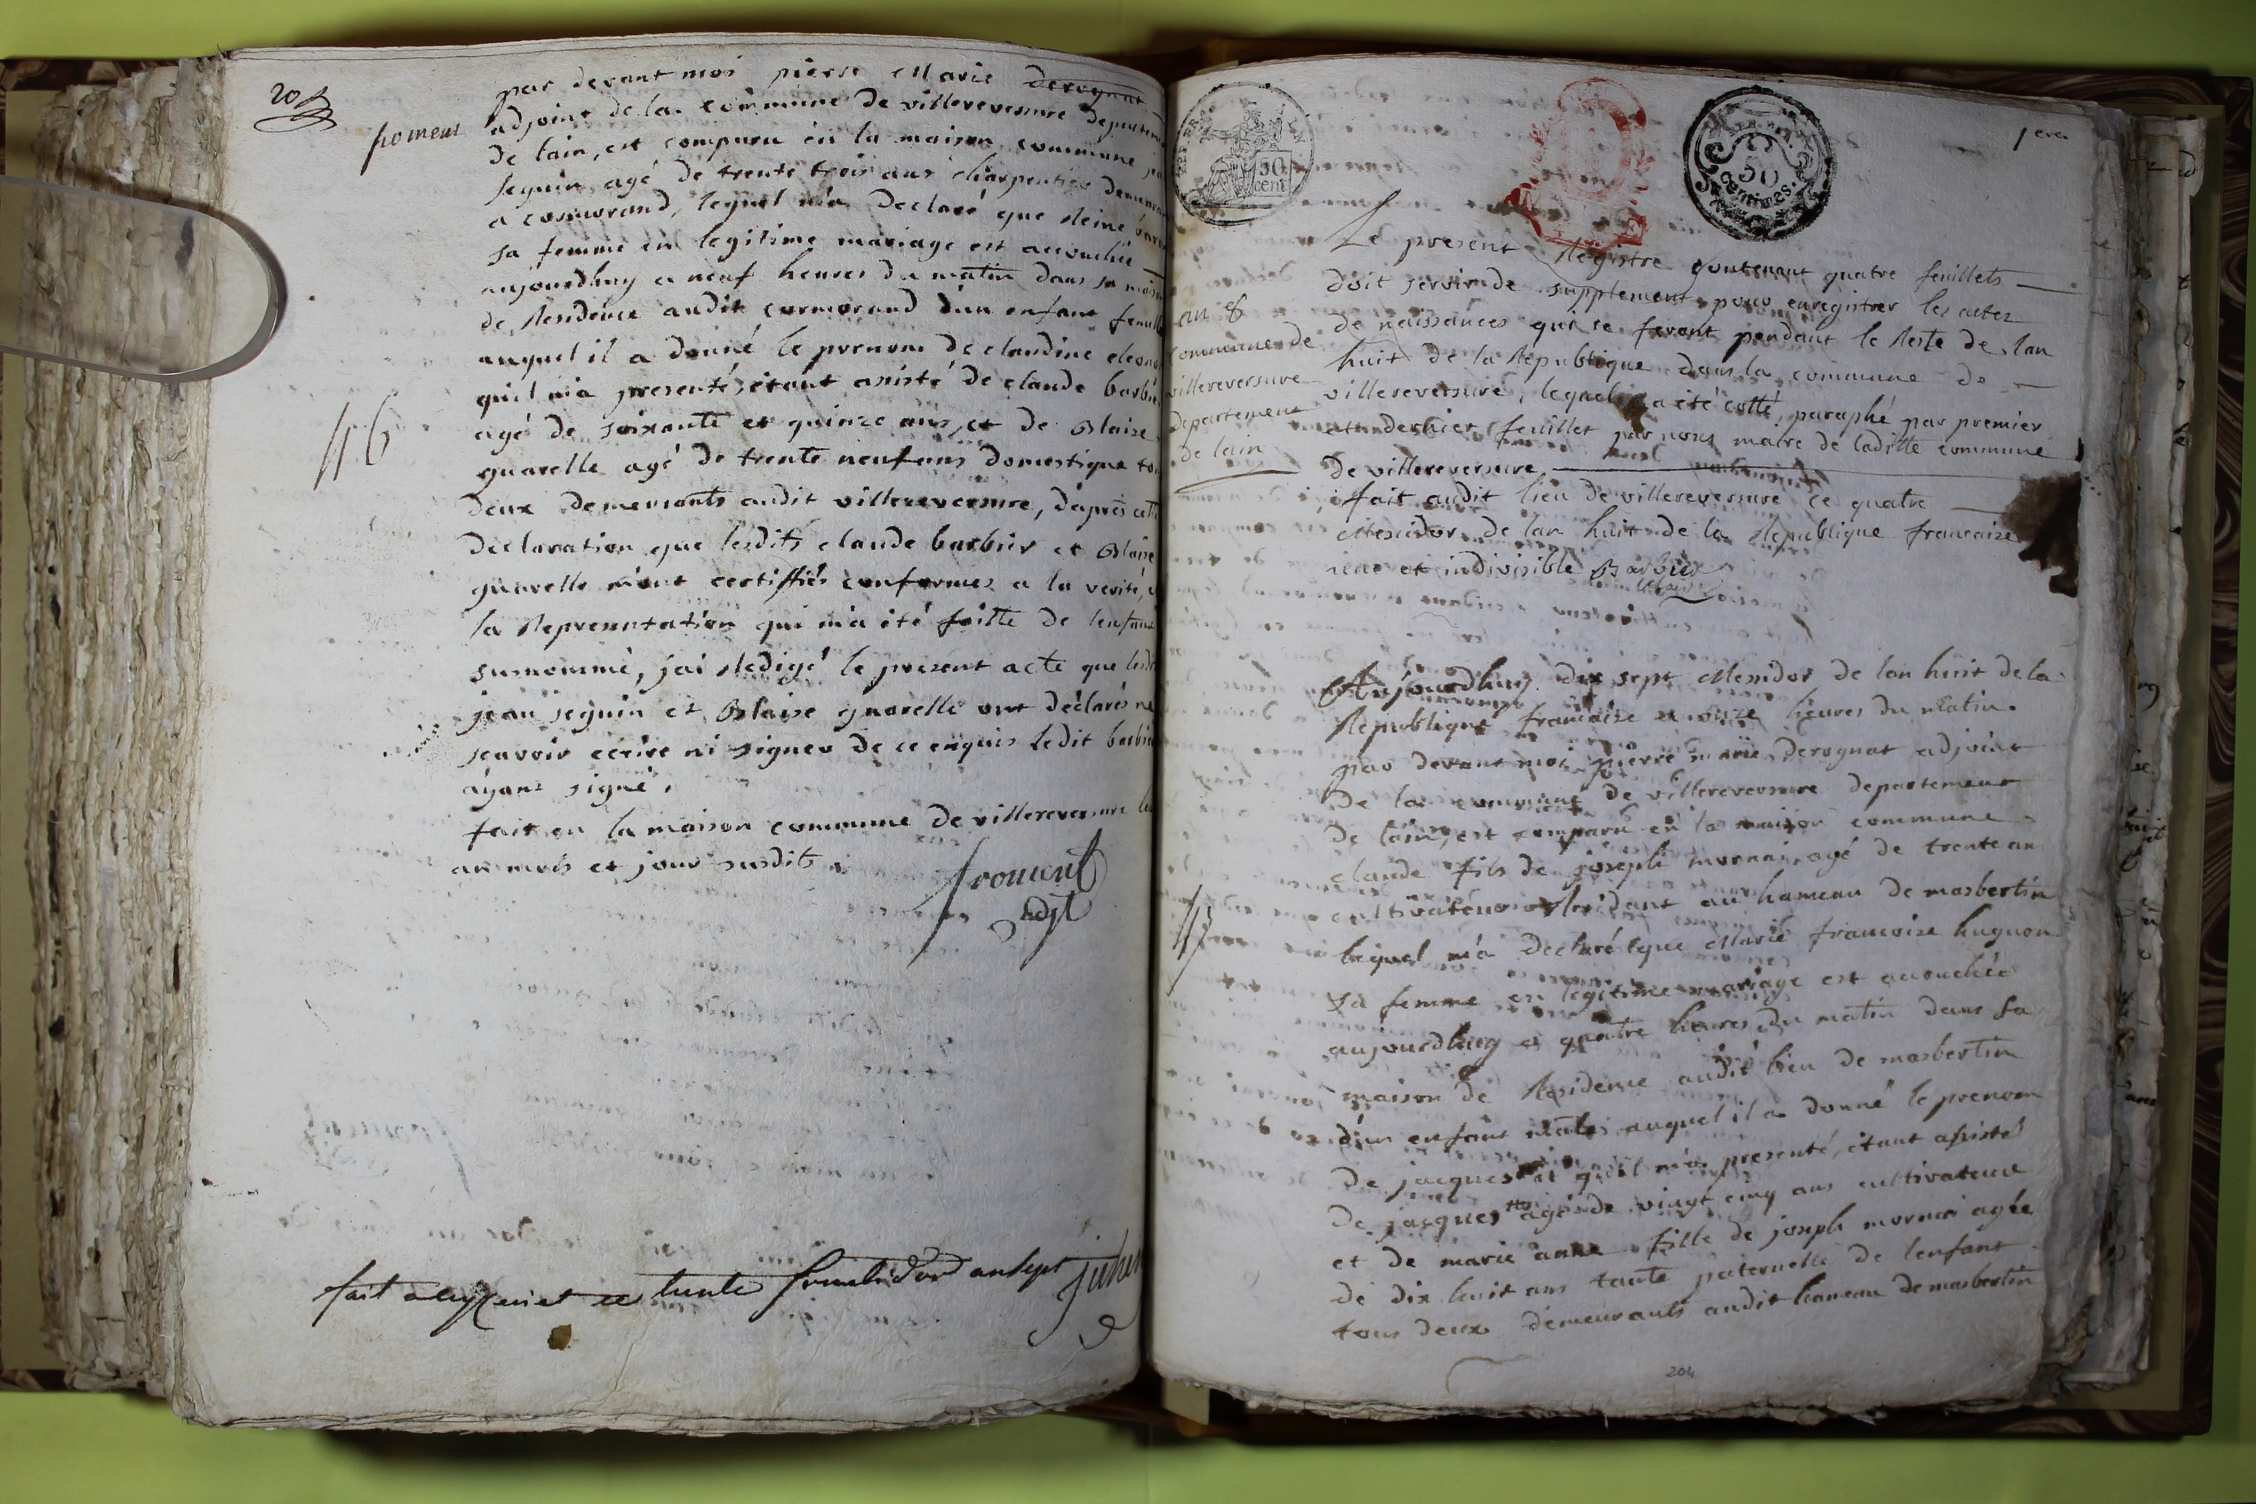 20
froment
par devant moi pierre Marie derognat
adjoint de la commune de villereversure departem
de lain, est comparu en la maison commune jea
seguin agé de trente trois ans charpentier demeura
a cormorand, lequel m'a declaré que Reine
sa femme en legitime mariage est accouchée
aujourdhuy a neuf heures du matin dans sa maiso
de Residence audit cormorand d'un enfant femelle
auquel il a donné le prenom de claudine eleono
quil m'a presenté, étant assisté de claude barbie
agé de soixante et quinze ans, et de Blaise
guarelle agé de trente neuf ans domestique tou
46
deux demeurants audit villereversure, d'après cette
declaration que lesdits claude barbier et Blaise
guarelle m'ont certiffiés conformes a la verité, e
la Representation qui m'a été faitte de lenfant
surnommé, j'ai Redigé le present acte que lesd
jean seguin et Blaise guarelle ont déclarés ne
scavoir ecrire ni signer de ce enquis ledit barbier
ayant signé,
fait en la maison commune de villereversure les
an mois et jour susdits
froment
adjt
fait a ceyzeriat ce trente fructidor an sept
1er
50 cent
50 centimes
Le present Registre contenant quatre feuillets
doit servir de supplement pour enregistrer les actes
de naissances qui se feront pendant le Reste de lan
huit de la Republique dans la commune de
villereversure, lequel a été cotté, paraphé par premier
et dernier feuillet par nous maire de laditte commune
de villereversure
an 8
commune de
villereversure
departement
de lain
fait audit lieu de villereversure ce quatre
Messidor de lan huit de la Republique francaise
une et indivisible Barbier
maire
Aujourdhuy dix sept Messidor de lan huit de la
Republique francaise a onze heures du matin.
par devant moi pierre marie derognat adjoint
de la commune de villereversure departement
de lain, est comparu en la maison commune
claude fils de joseph mornai, agé de trente an
cultivateur Residant au hameau de masbertin
47
lequel m'a declaré que Marie francoise hugon
sa femme en legitime mariage est accouchée
aujourdhuy a quatre heures du matin dans sa
maison de Residence audit lieu de masbertin
d'un enfant male auquel il a donné le prenom
de jacques et quil m'a presenté, étant assisté
de jacques agé de vingt cinq ans cultivateur
et de marie anne fille de joseph mornai agée
de dix huit ans tante paternelle de lenfant
tous deux demeurants audit hameau de masbertin
204